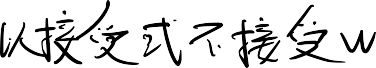 以接受式不接受W